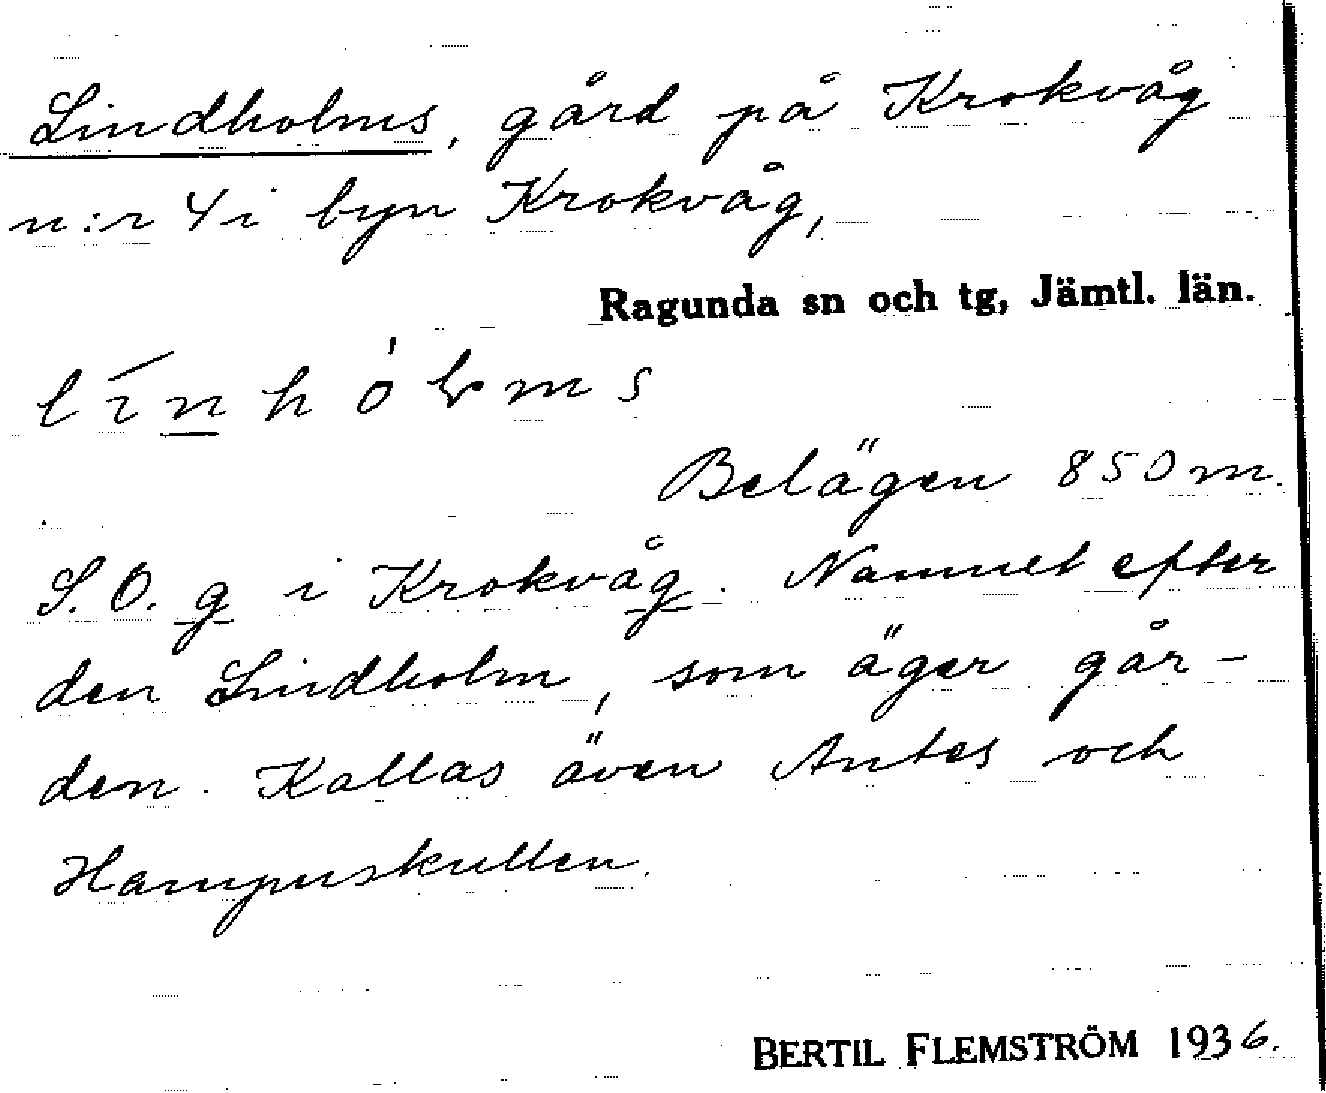 Lindholms, gård på Krokvåg
n:r 4 i byn Krokvåg,
Ragunda sn och tg, Jämtl. län.
Belägen 850 m.
S.O. g i Krokvåg. Namnet efter
den Lindholm, som äger går-
den. Kallas även Antes och
Hampuskullen.
BERTIL FLEMSTRÖM 1936.